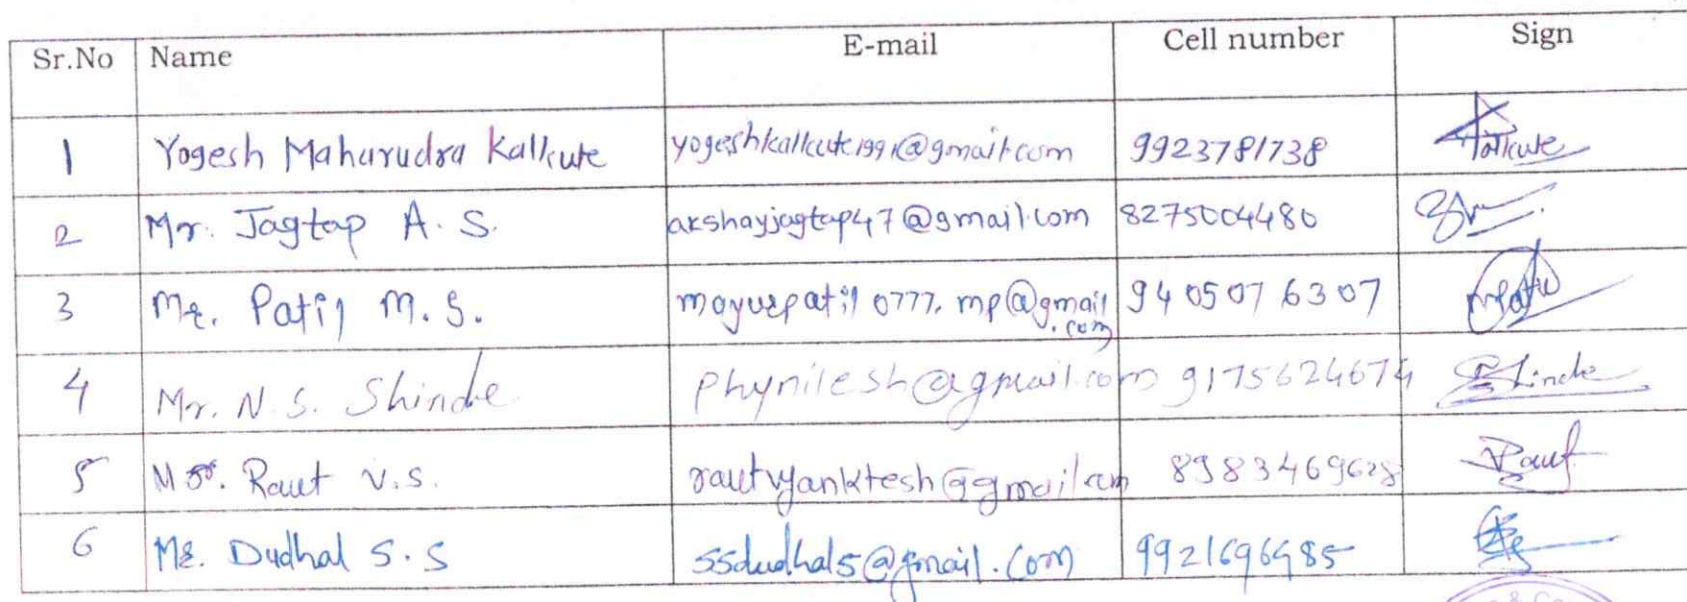 Sr.No Name E-mail Cell number Sign
1 Yogesh Maharudra Kalkute yogeshkalkute1991@gmail.com 9923781738 Kalkute
2 Mr. Jagtap A. S. akshayjagtap47@gmail.com 8275004480
3 Mr. Patil M. S. mayurpatil0777.mp@gmail.com 9405076307 mpatil
4 Mr. N. S. Shinde phynilesh@gmail.com 9175624674 Shinde
5 Mr. Raut V.S. rautvyanktesh@gmail.com 8983469628 Raut
6 Mr. Dudhal S.S ssdudhal5@gmail.com 9921696985